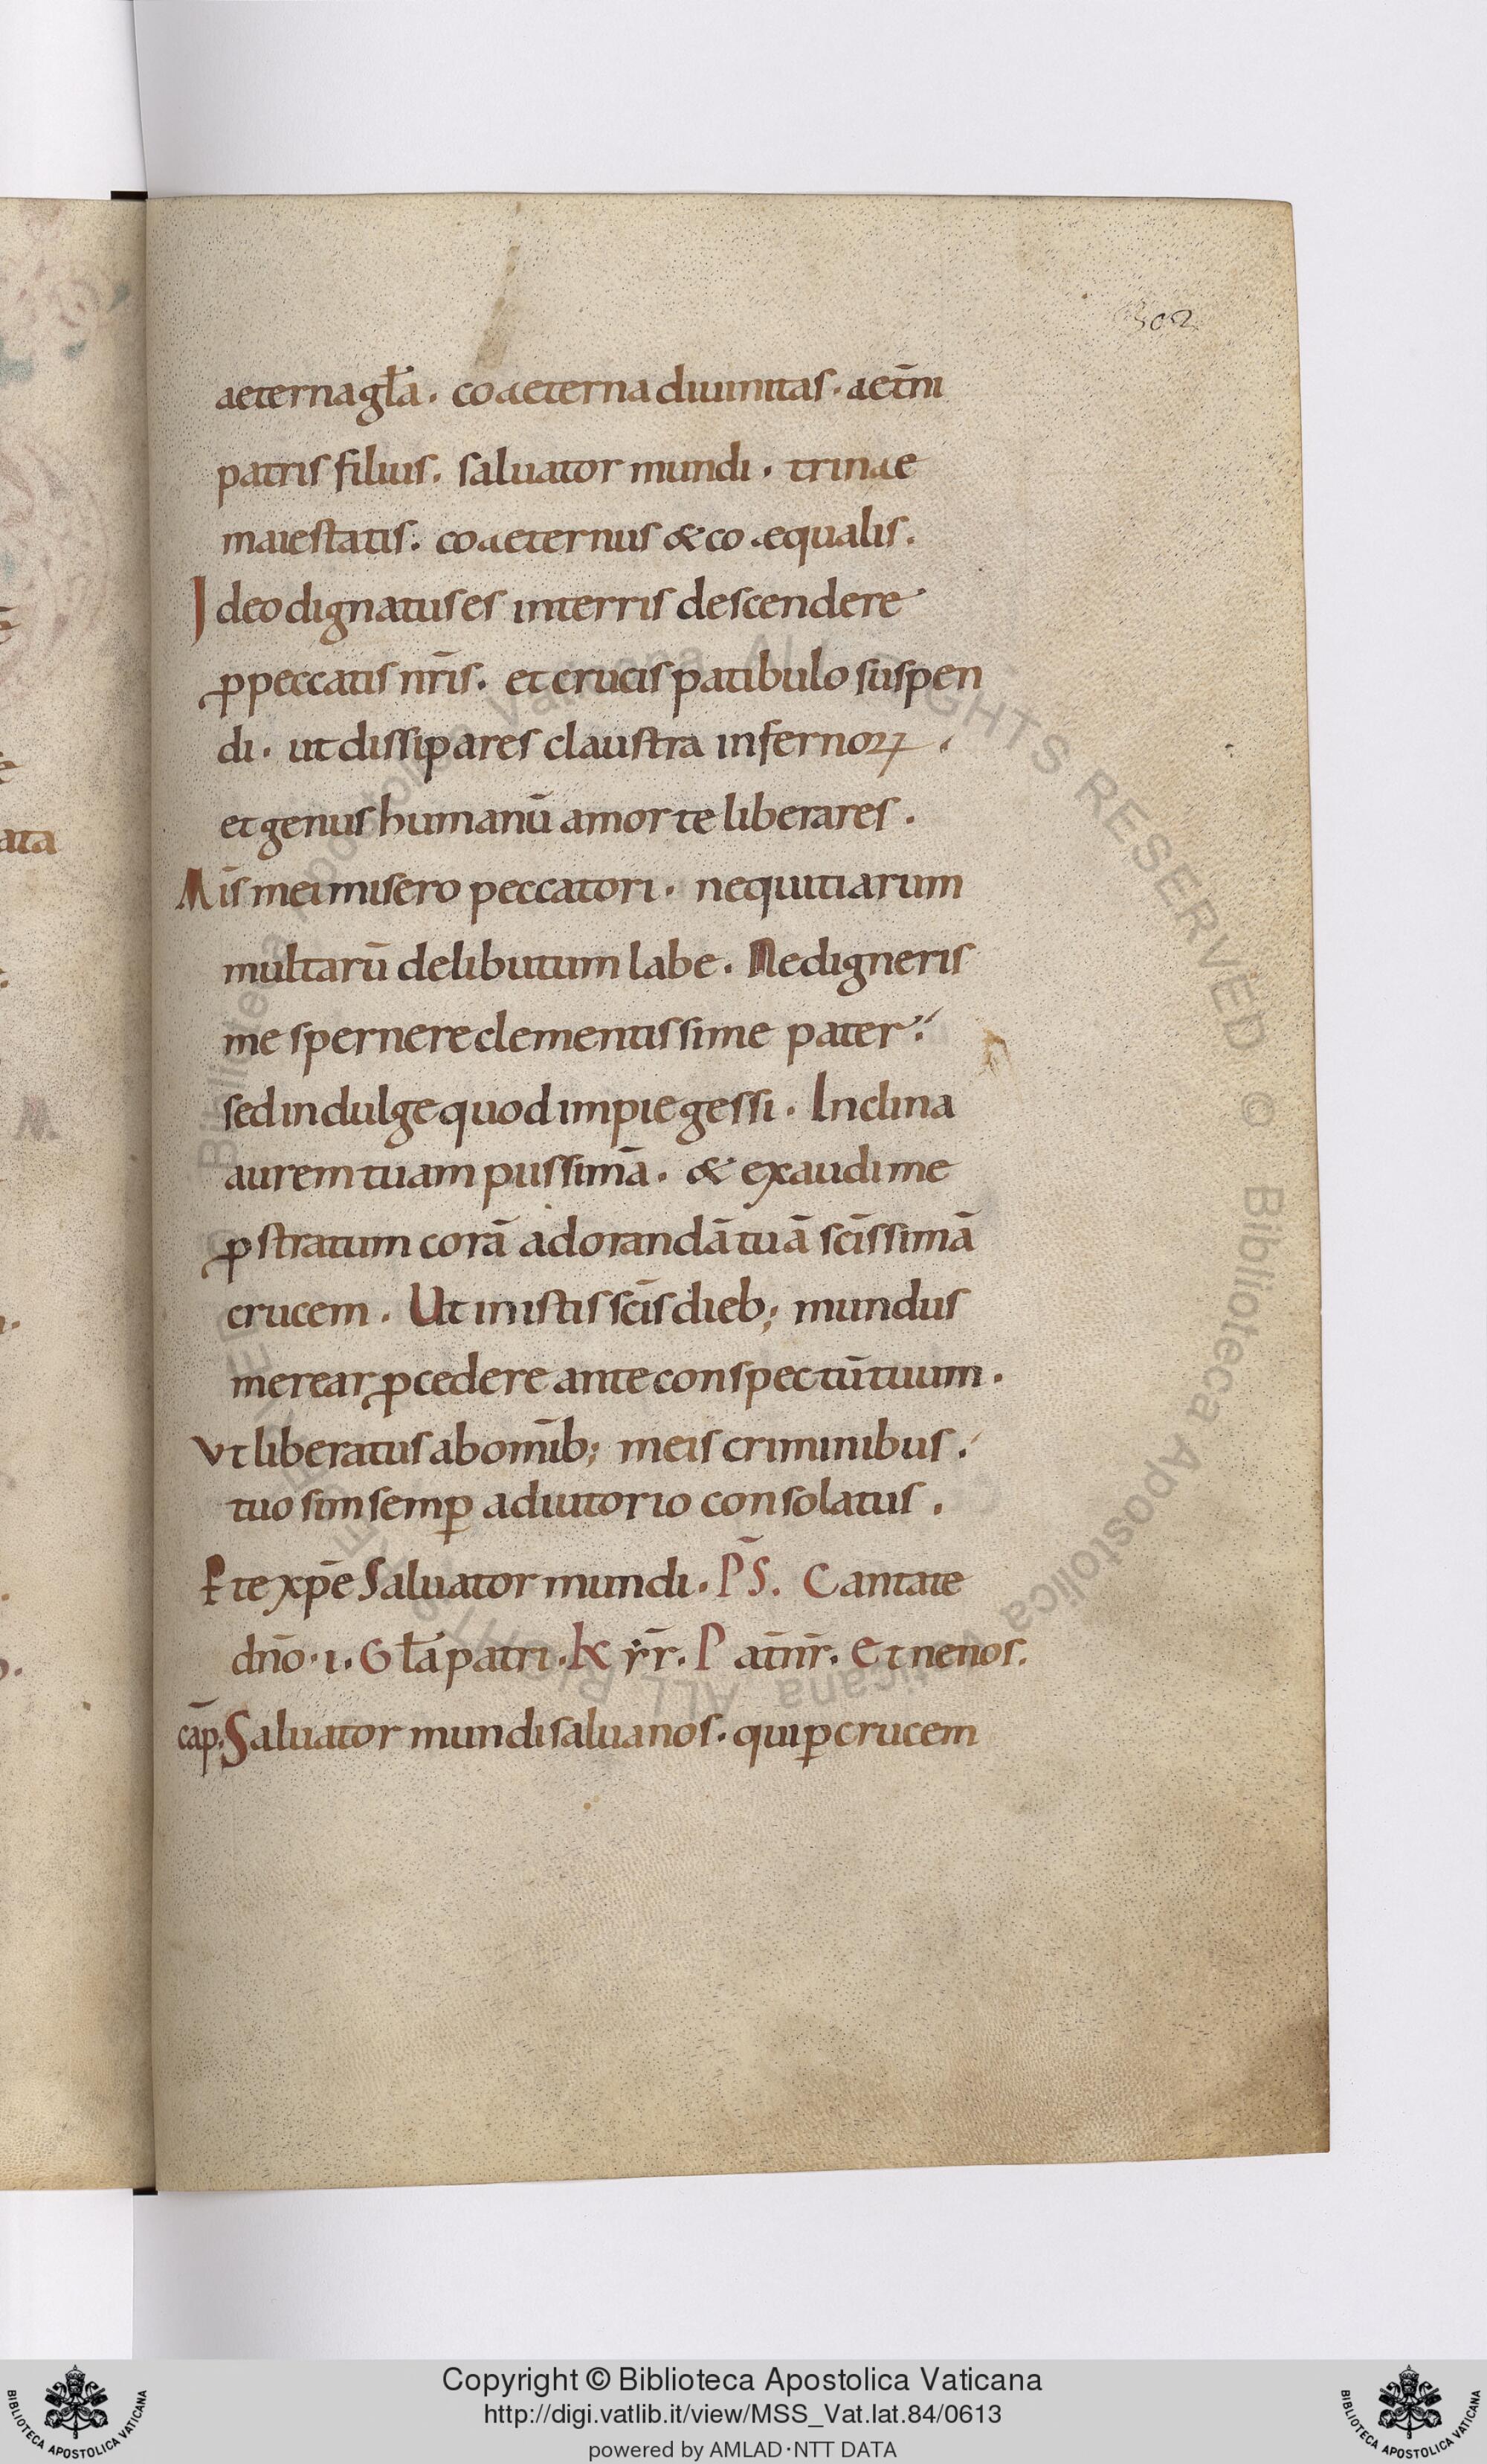 302
aeterna gl̄a. coaeterna diuinitas. aet̄ni
patris filius. saluator mundi. trinae
maiestatis. coaeternus & coaequalis.
Ideo dignatus es in terris descendere
ꝓ peccatis nr̄is. et crucis patibulo suspen
di. ut dissipares claustra infernoꝝ.
et genus humanū a morte liberares.
Mis̄ mei misero peccatori. nequitiarum
multarū delibutum labe. Ne digneris
me spernere clementissime pater.
sed indulge quod impie gessi. Inclina
aurem tuam piissimā. & exaudi me
ꝓstratum corā adorandā tuā sc̄issimā
crucem. Ut in istis sc̄is dieb; mundus
merear ꝓcedere ante conspectū tuum.
Vt liberatus ab om̄ib; meis criminibus.
tuo sim semꝑ adiutorio consolatus.
Per te xp̄e saluator mundi. P̄S. Cantate
dn̄o. i. Gl̄a patri. K yr̄r. Pat̄ nr̄. Et ne nos.
cap̄. Saluator mundi salua nos. qui ꝑ crucem
ata
Copyright © Biblioteca Apostolica Vaticana
http://digi.vatlib.it/view/MSS_Vat.lat.84/0613
powered by AMLAD·NTT DATA
BIBLIOTECA APOSTOLICA VATICANA
BIBLIOTECA APOSTOLICA VATICANA